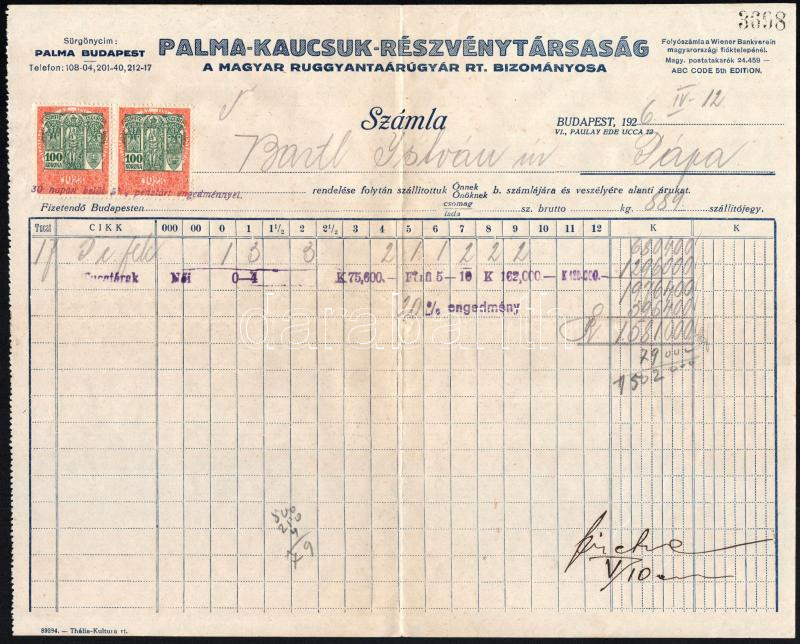 3698
Sürgönycim:
PALMA BUDAPEST
Telefon: 108-04, 201-40, 212-17
PALMA-KAUCSUK-RÉSZVÉNYTÁRSASÁG
A MAGYAR RUGGYANTAÁRÚGYÁR RT. BIZOMÁNYOSA
Folyószámla a Wiener Bankverein
magyarországi fióktelepénél.
Magy. postatakarék 24.459 —
ABC CODE 5th EDITION.
100
KORONA
100
KORONA
Számla
BUDAPEST, 1926 IV-12
VI., PAULAY EDE UCCA 12
Bartl István úr Pápa
30 napon belül 5% pénztári engedménnyel.
rendelése folytán szállítottuk Önnek Önöknek b. számlájára és veszélyére alanti árukat.
Fizetendő Budapesten csomag láda sz. brutto kg. 889 szállítójegy.
Tucat CIKK 000 00 0 1 1½ 2 2½ 3 4 5 6 7 8 9 10 11 12 K K
17 1 3 3 2 1 1 2 2 2 680400
Női 0—4 K 75,600.— Férfi 5—10 K 162,000.— 1296000
1976400
20 % engedmény
1.581000
79000
1502000
V/10
89294. — Thália-Kultura rt.
darabanth